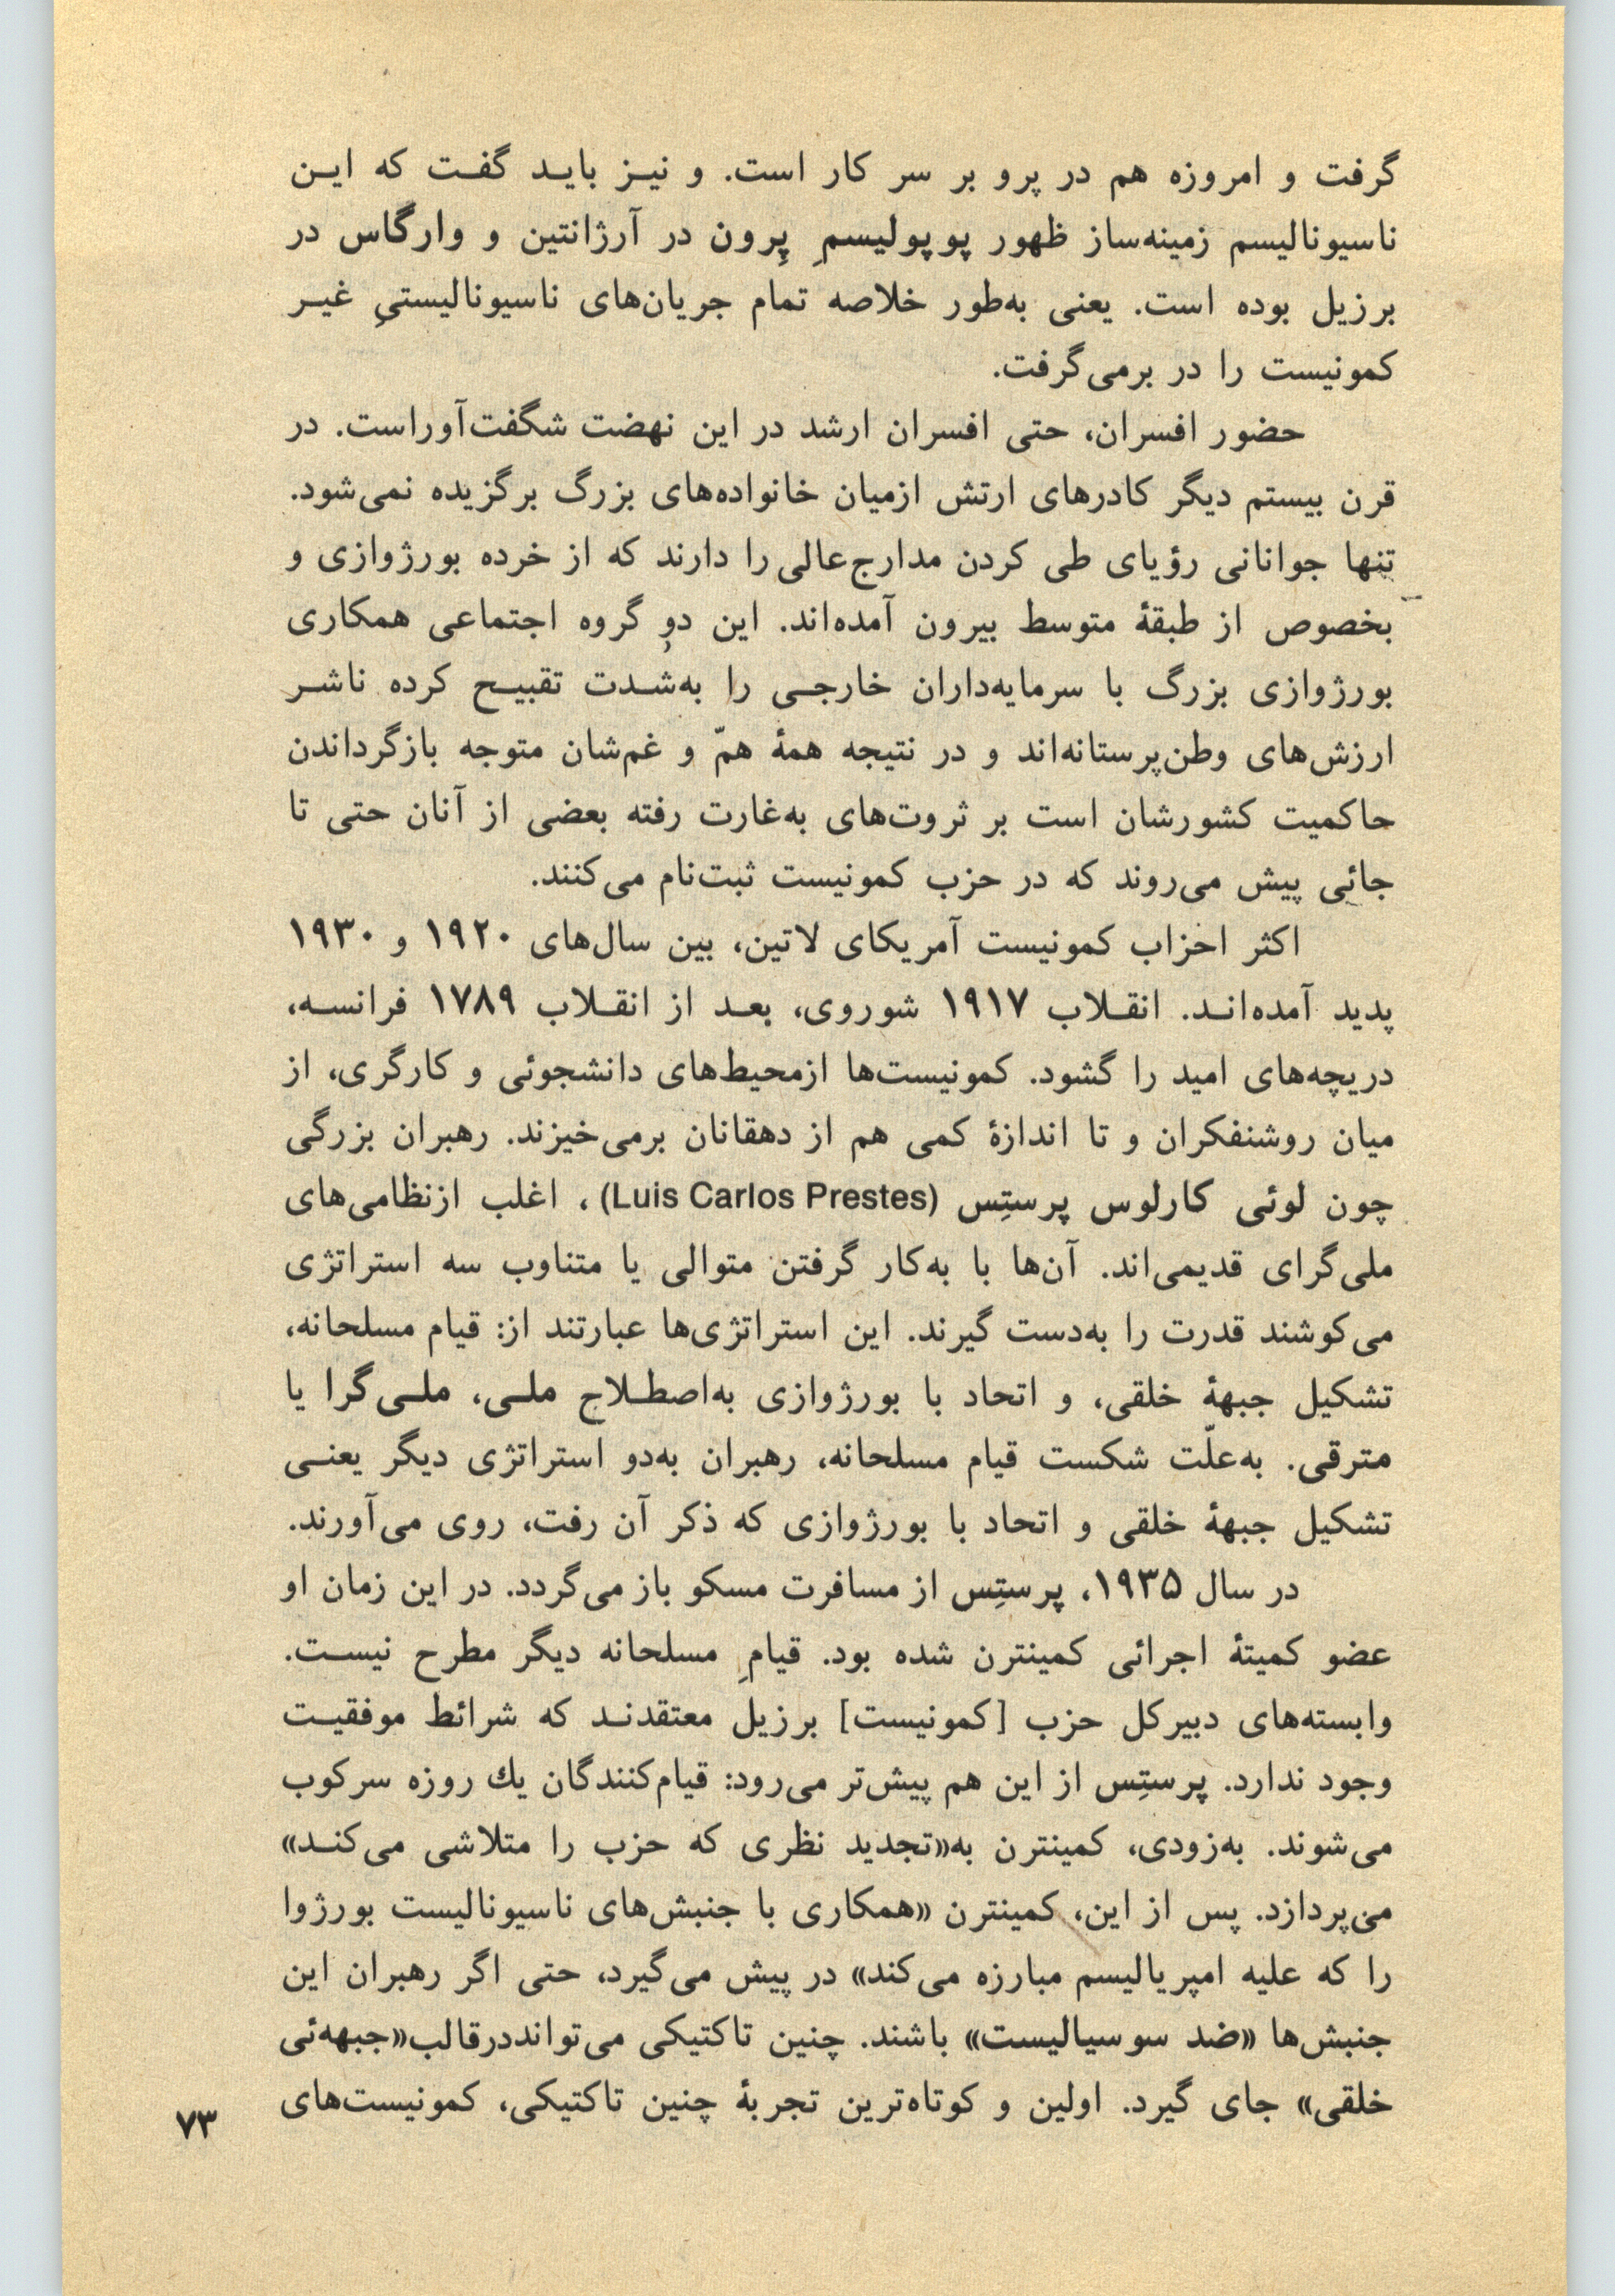 گرفت و امروزه هم در پرو بر سر کار است. و نیـز بایـد گفـت که ایـن
ناسیونالیسم زمینه‌ساز ظهور پوپولیسمِ پِرون در آرژانتین و وارگاس در
برزیل بوده است. یعنی به‌طور خلاصه تمام جریان‌های ناسیونالیستیِ غیـر
کمونیست را در برمی‌گرفت.
حضور افسران، حتی افسران ارشد در این نهضت شگفت‌آوراست. در
قرن بیستم دیگر کادرهای ارتش ازمیان خانواده‌های بزرگ برگزیده نمی‌شود.
تنها جوانانی رؤیای طی کردن مدارج‌عالی را دارند که از خرده بورژوازی و
بخصوص از طبقهٔ متوسط بیرون آمده‌اند. این دوِ گروه اجتماعی همکاری
بورژوازی بزرگ با سرمایه‌داران خارجـی را به‌شـدت تقبیـح کرده ناشـر
ارزش‌های وطن‌پرستانه‌اند و در نتیجه همهٔ همّ و غم‌شان متوجه بازگرداندن
حاکمیت کشورشان است بر ثروت‌های به‌غارت رفته بعضی از آنان حتی تا
جائی پیش می‌روند که در حزب کمونیست ثبت‌نام می‌کنند.
اکثر احزاب کمونیست آمریکای لاتین، بین سال‌های ۱۹۲۰ و ۱۹۳۰
پدید آمده‌انـد. انقـلاب ۱۹۱۷ شوروی، بعـد از انقـلاب ۱۷۸۹ فرانسـه،
دریچه‌های امید را گشود. کمونیست‌ها ازمحیط‌های دانشجوئی و کارگری، از
میان روشنفکران و تا اندازهٔ کمی هم از دهقانان برمی‌خیزند. رهبران بزرگی
چون لوئی کارلوس پرستِس (Luis Carlos Prestes)، اغلب ازنظامی‌های
ملی‌گرای قدیمی‌اند. آن‌ها با به‌کار گرفتن متوالی یا متناوب سه استراتژی
می‌کوشند قدرت را به‌دست گیرند. این استراتژی‌ها عبارتند از: قیام مسلحانه،
تشکیل جبههٔ خلقی، و اتحاد با بورژوازی به‌اصطـلاح ملـی، ملـی‌گرا یا
مترقی. به‌علّت شکست قیام مسلحانه، رهبران به‌دو استراتژی دیگر یعنـی
تشکیل جبههٔ خلقی و اتحاد با بورژوازی که ذکر آن رفت، روی می‌آورند.
در سال ۱۹۳۵، پرستِس از مسافرت مسکو باز می‌گردد. در این زمان او
عضو کمیتهٔ اجرائی کمینترن شده بود. قیامِ مسلحانه دیگر مطرح نیسـت.
وابسته‌های دبیرکل حزب [کمونیست] برزیل معتقدنـد که شرائط موفقیـت
وجود ندارد. پرستِس از این هم پیش‌تر می‌رود: قیام‌کنندگان یك روزه سرکوب
می‌شوند. به‌زودی، کمینترن به«تجدید نظری که حزب را متلاشی می‌کنـد»
می‌پردازد. پس از این، کمینترن «همکاری با جنبش‌های ناسیونالیست بورژوا
را که علیه امپریالیسم مبارزه می‌کند» در پیش می‌گیرد، حتی اگر رهبران این
جنبش‌ها «ضد سوسیالیست» باشند. چنین تاکتیکی می‌توانددرقالب«جبهه‌ئی
خلقی» جای گیرد. اولین و کوتاه‌ترین تجربهٔ چنین تاکتیکی، کمونیست‌های
۷۳